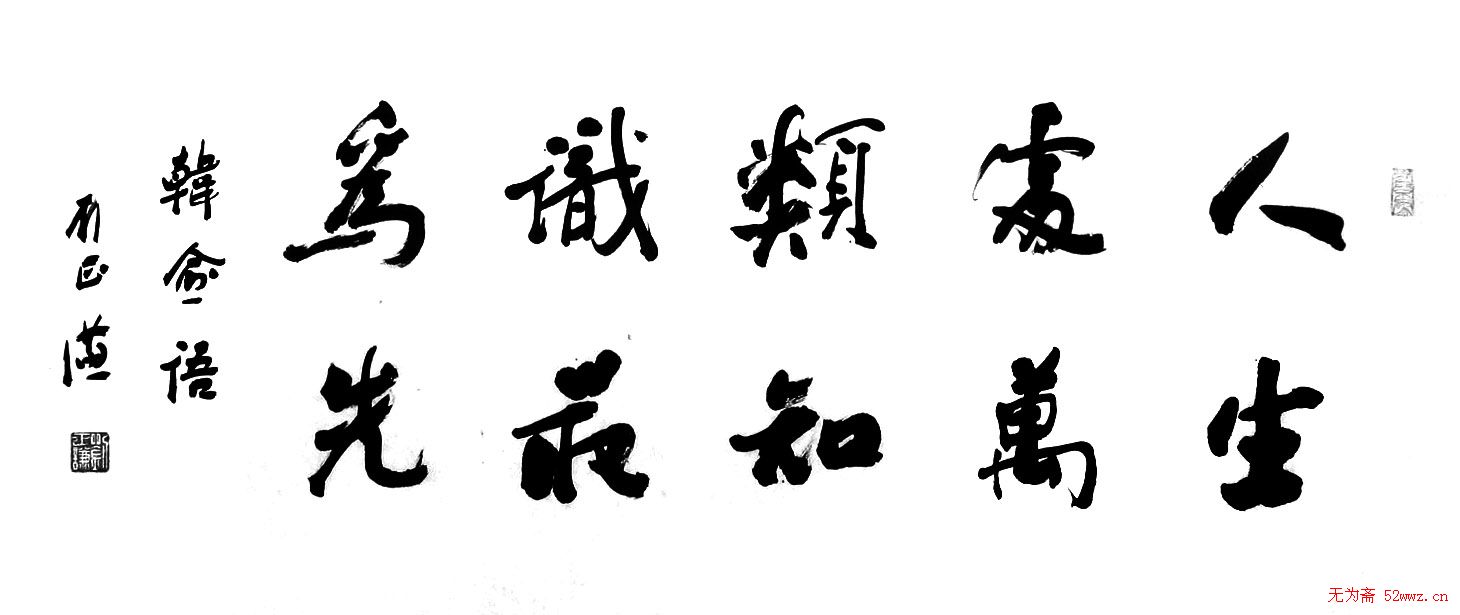 人生
處萬
類知
識最
爲先
韓愈語
无为斋 52wwz.cn